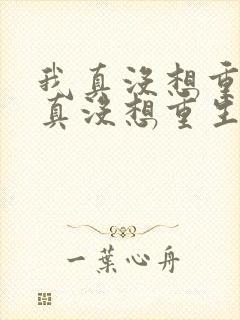 我真没想重
真没想重生
一葉心舟